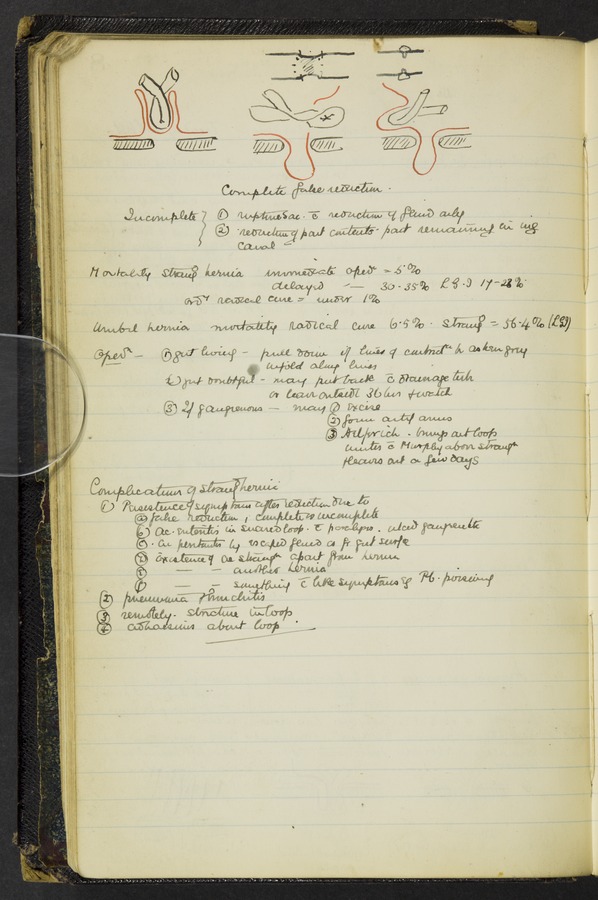 Complete false reduction.
Incomplete } ① rupture sac. c̄ reduction of fluid only
② reduction of part contents. part remaining in ing
canal -
Mortality strang hernia immediate oper = 5%
delayed — 30.35% L.G.I 17-28%
ordy radical cure = under 1%
Umbil hernia mortality radical cure 6.5%. strang = 56.4% (LGI)
Oper — ① gut living - pull down if lines of constrictn be ashen grey
infold along lines
② gut doubtful - may put back c̄ drainage tube
or leave outside 36 hrs & watch
③ If gangrenous — may ① excise
② form artif anus
③ brings out loop
unites c̄ Murphy above strangn
& leaves out a few days
Complications of strang hernia
① Persistence of symptoms after reduction due to
ⓐ false reduction, complete or incomplete
ⓑ ac. enteritis in snared loop. c̄ paralysis. ulced gangrenete
ⓒ. ac peritonitis by escaped fluid or fr gut surfce
ⓓ existence of ac strangn apart from hernia
ⓔ — — another hernia
ⓕ — — something c̄ like symptoms eg Pb. poisoning
② pneumonia & bronchitis
③ remotely. stricture in loop
④ adhaesions about loop.